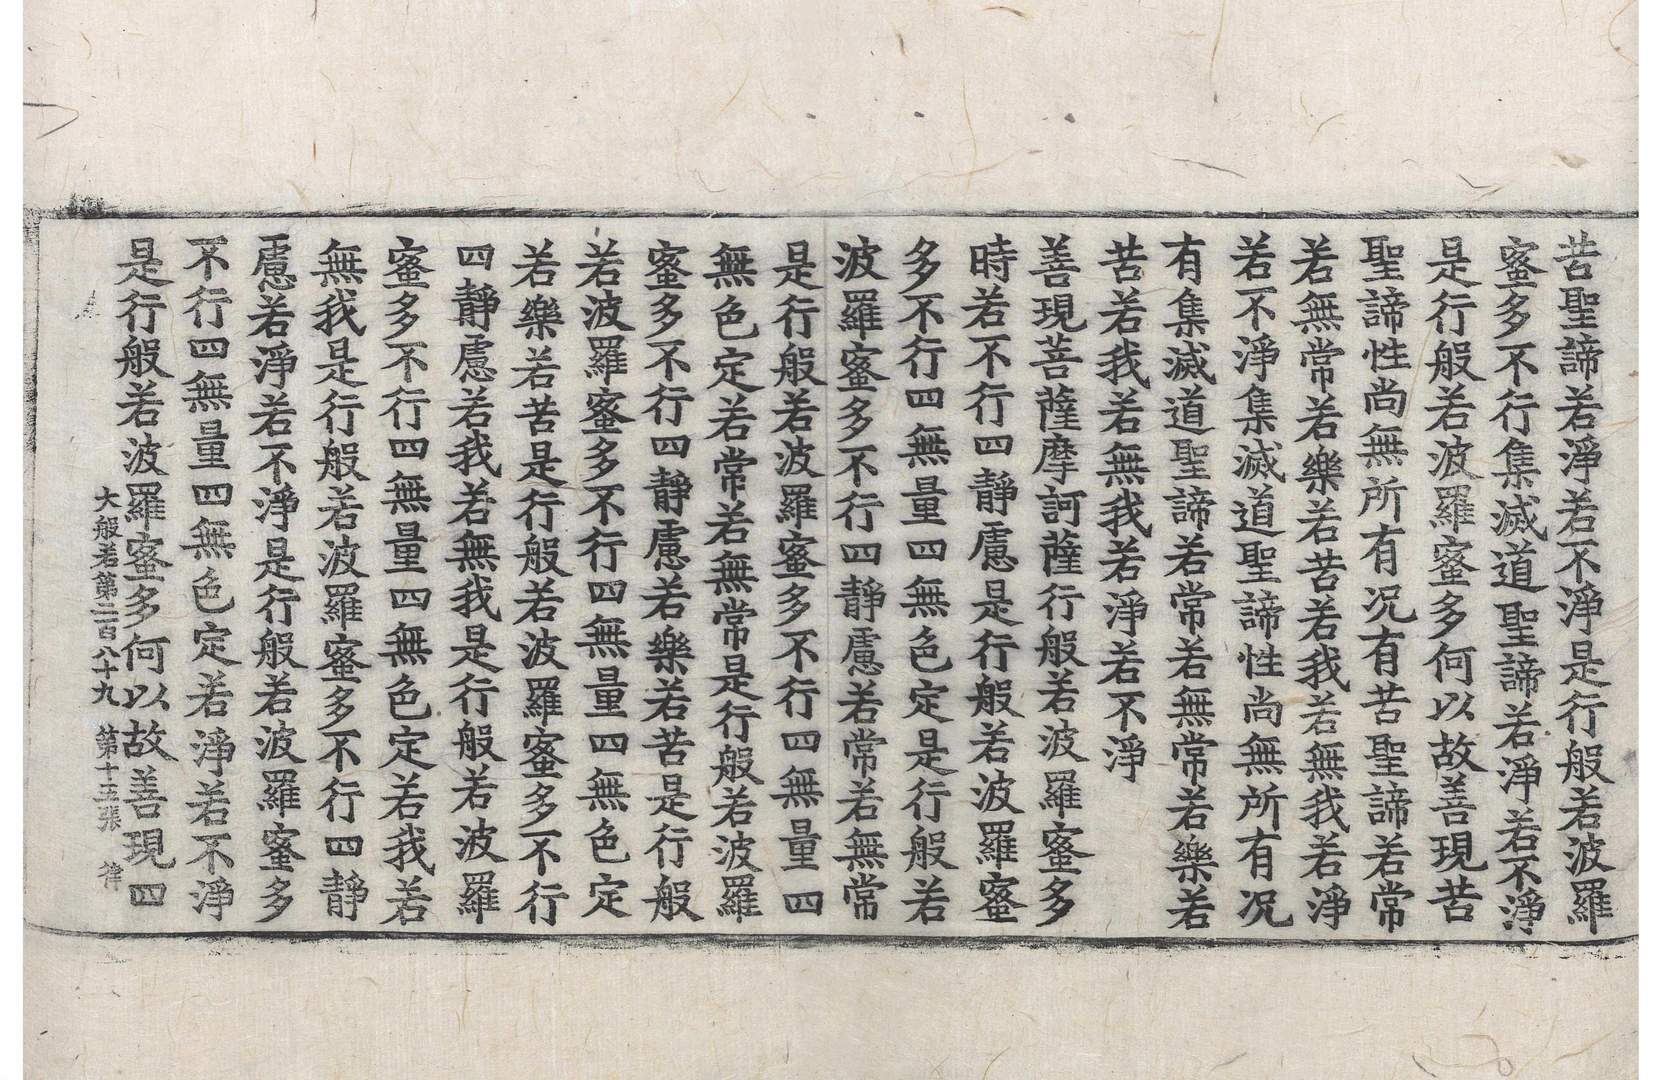 苦聖諦若淨若不淨是行般若波羅
蜜多不行集滅道聖諦若淨若不淨
是行般若波羅蜜多何以故善現苦
聖諦性尚無所有况有苦聖諦若常
若無常若樂若苦若我若無我若淨
若不淨集滅道聖諦性尚無所有况
有集滅道聖諦若常若無常若樂若
苦若我若無我若淨若不淨
善現菩薩摩訶薩行般若波羅蜜多
時若不行四靜慮是行般若波羅蜜
多不行四無量四無色定是行般若
波羅蜜多不行四靜慮若常若無常
是行般若波羅蜜多不行四無量四
無色定若常若無常是行般若波羅
蜜多不行四靜慮若樂若苦是行般
若波羅蜜多不行四無量四無色定
若樂若苦是行般若波羅蜜多不行
四靜慮若我若無我是行般若波羅
蜜多不行四無量四無色定若我若
無我是行般若波羅蜜多不行四靜
慮若淨若不淨是行般若波羅蜜多
不行四無量四無色定若淨若不淨
是行般若波羅蜜多何以故善現四
大般若第二百八十九　第十五張　律